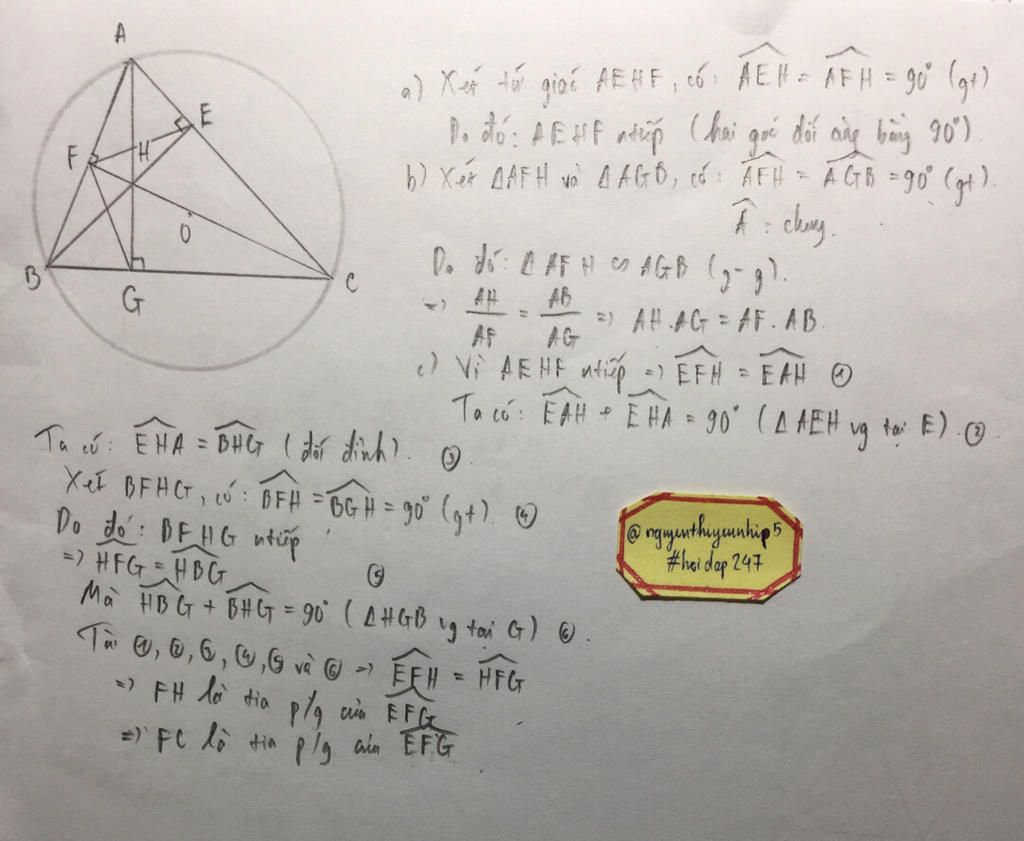 A
E
F
H
O
B
G
C
a) Xét tứ giác AEHF, có: \widehat{AEH} = \widehat{AFH} = 90° (gt)
Do đó: AEHF ntiếp (hai góc đối cùng bằng 90°).
b) Xét ΔAFH và ΔAGB, có: \widehat{AFH} = \widehat{AGB} = 90° (gt).
\widehat{A} : chung.
Do đó: Δ AFH ∽ AGB (g-g).
=> \frac{AH}{AF} = \frac{AB}{AG} => AH.AG = AF.AB.
c) Vì AEHF ntiếp => \widehat{EFH} = \widehat{EAH} ①
Ta có: \widehat{EAH} + \widehat{EHA} = 90° (ΔAEH vg tại E). ②
Ta có: \widehat{EHA} = \widehat{BHG} (đối đỉnh). ③
Xét BFHG, có: \widehat{BFH} = \widehat{BGH} = 90° (gt). ④
Do đó: BFHG ntiếp
=> \widehat{HFG} = \widehat{HBG} ⑤
Mà \widehat{HBG} + \widehat{BHG} = 90° (ΔHGB vg tại G) ⑥.
Từ ①, ②, ③, ④, ⑤ và ⑥ => \widehat{EFH} = \widehat{HFG}
=> FH là tia p/g của \widehat{EFG}
=> FC là tia p/g của \widehat{EFG}
@nguyenthuyennhip5
#hoidap247